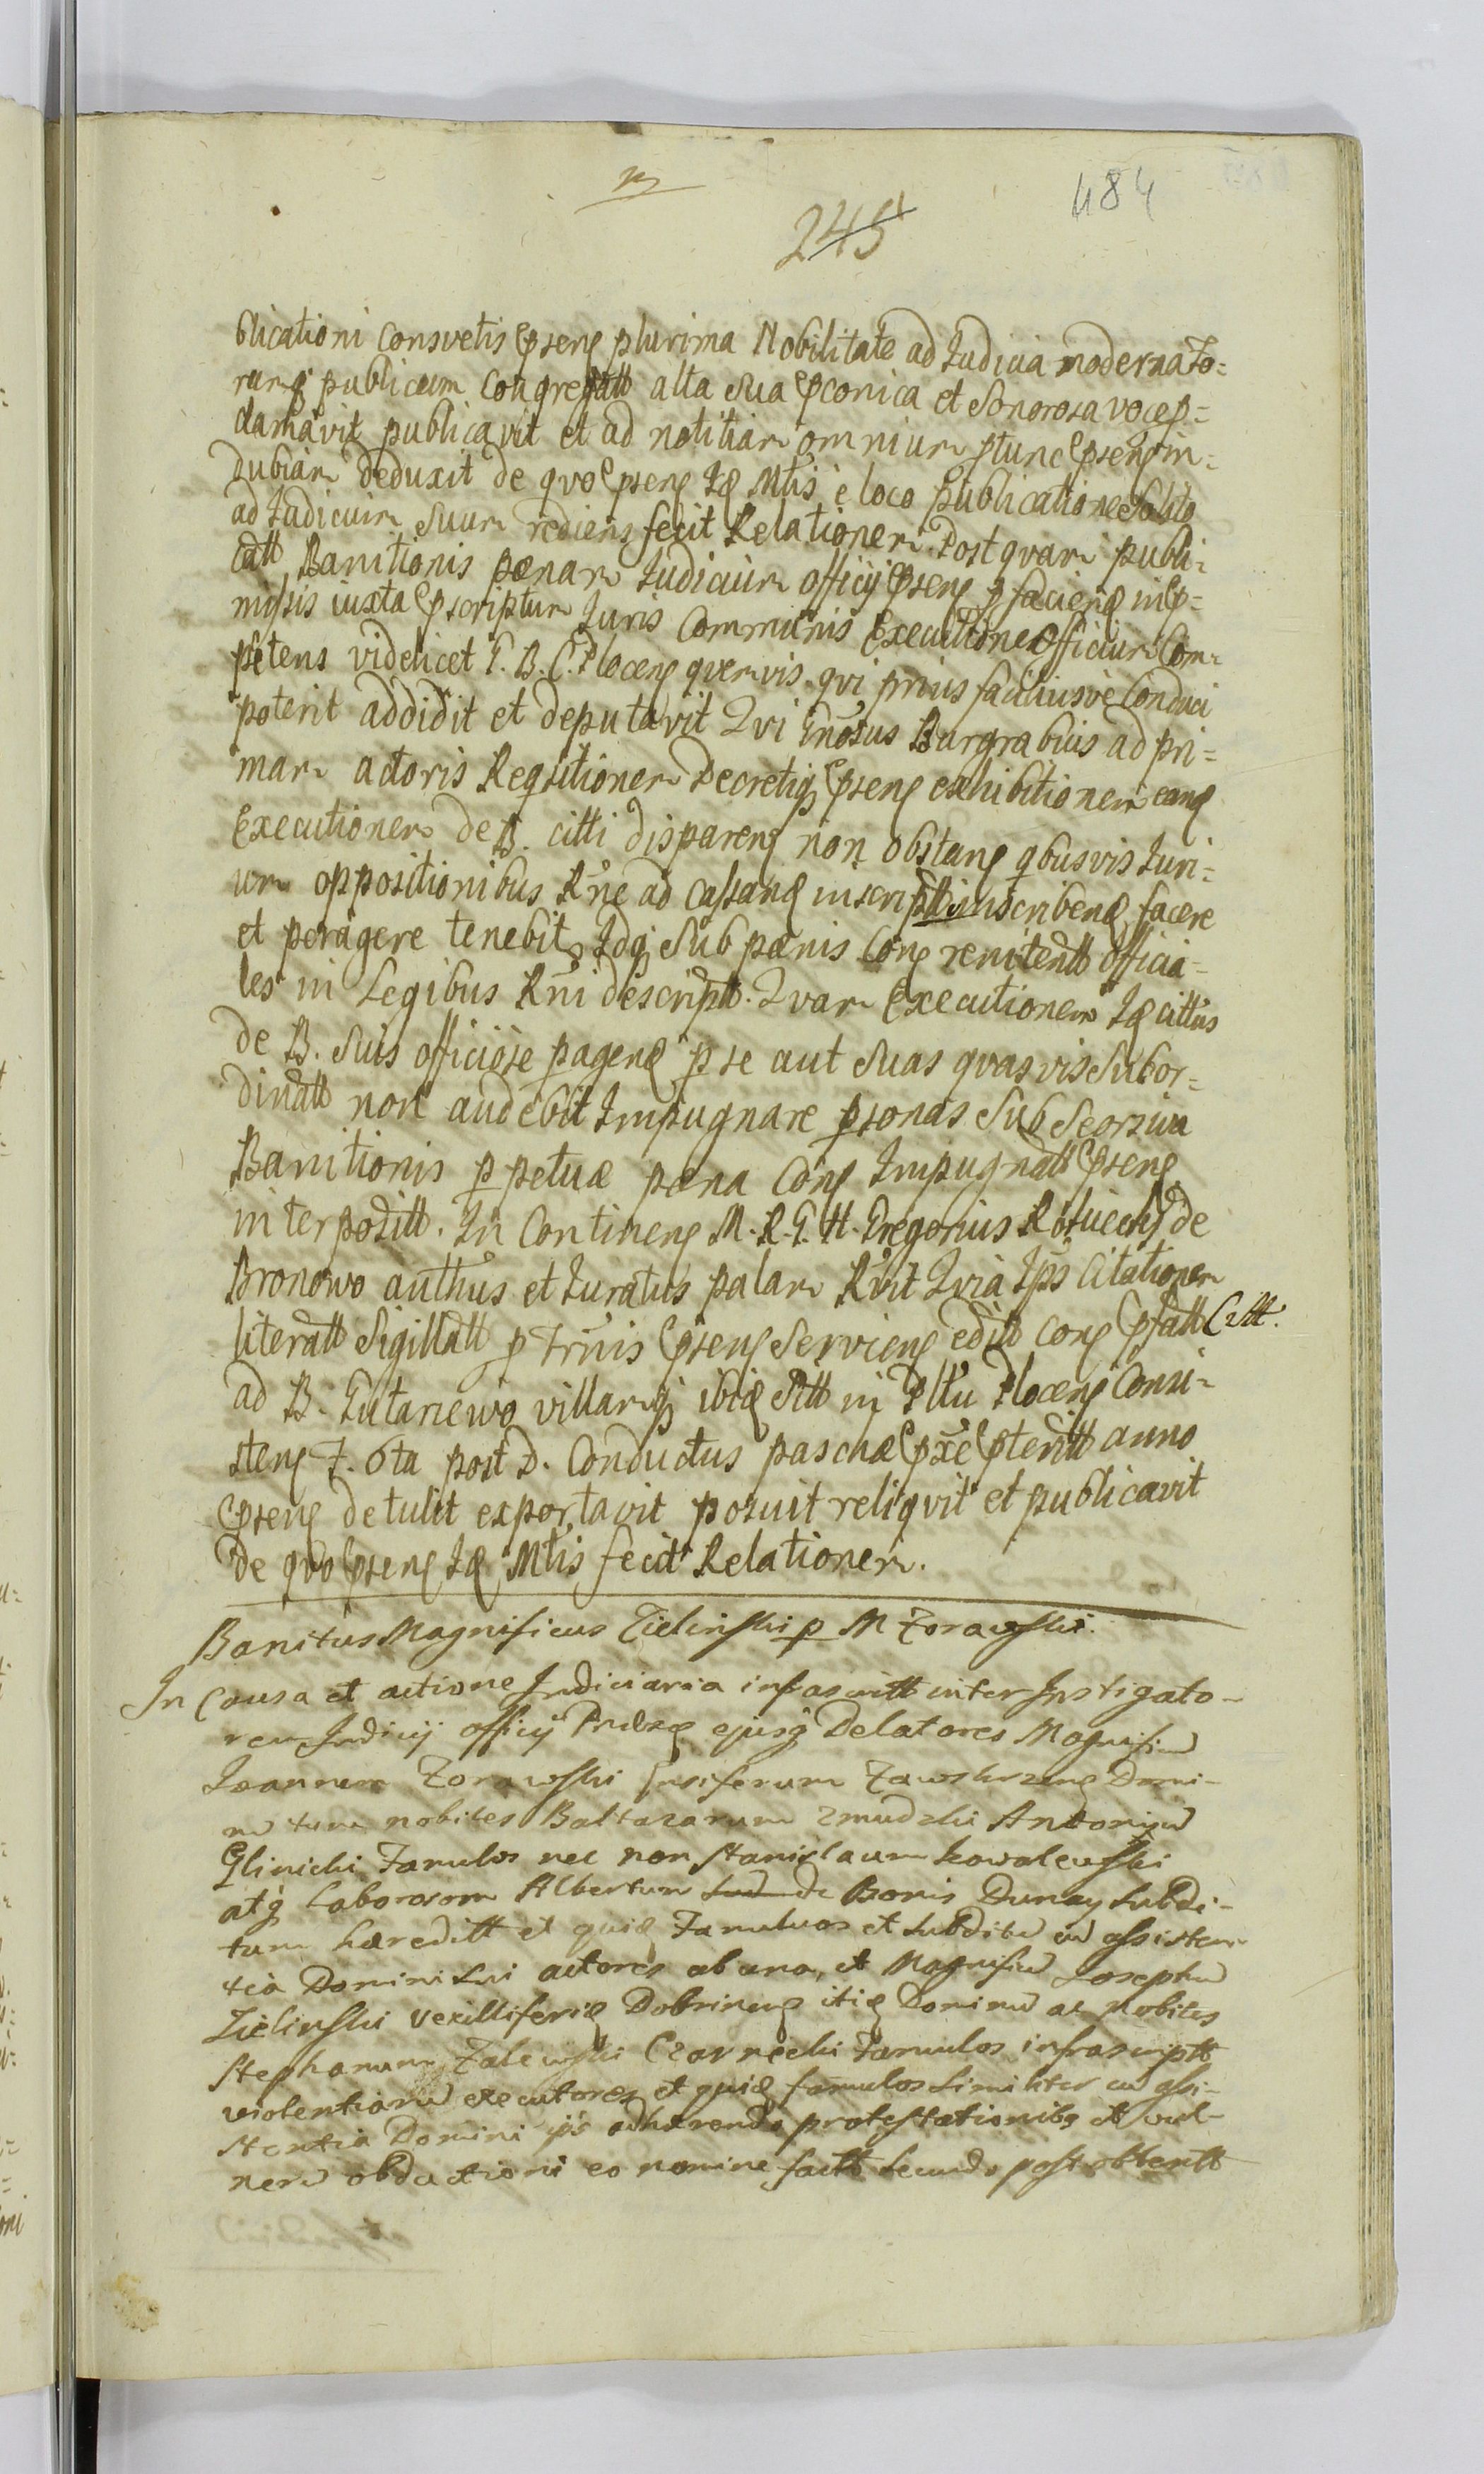 484
245
blicationi Consvetis Pserꝭ plurima Nobilitate ad Judicia moderna Fo-
rumqꝫ publicum Congregatt alta Sua Pconica et Sonorosa voce p-
clamavit publicavit et ad notitiam omnium ptunc Psenꝭ in-
dubiam deduxit de qvo Psenꝭ Idꝭ Mtis è loco publicatione Solito
ad Judicium Suum rediens fecit Relationem. Post qvam publi-
catt Banitionis pœnam Judicium Officij Psenꝭ p faciendꝭ in P-
missis iuxta Pscriptum Juris Communis Executione Officium Com-
petens videlicet C. B. C. Plocenꝭ qvemvis qvi prius faciliusvè Conduci
poterit addidit et deputavit Qvi Gnosus Burgrabius ad pri-
mam actoris Reqsitionem Decretiqꝫ Psenꝭ exhibitionem eandꝭ
Executionem de B. citti disparenꝭ non obstanꝭ qbusvis Juri-
um oppositionibus Rne ad Cassandꝭ inscriptt inscribendꝭ facere
et peragere tenebit, Idqꝫ Sub pœnis Conꝭ renitentt Officia-
les in Legibus Rni descriptt. Qvam Executionem Idꝭ cittus
de B. Suis officiose pagendꝭ p se aut Suas qvasvis Subor-
dinatt non audebit Impugnare psonas Sub Seorsiva
Banitionis p petuæ pœna Conꝭ Impugnatt Psenꝭ
interpositt. In Continenꝭ M. R. G. H. Gregorius Rosciecki de
Bronowo authus et Juratus palam Rvit Qvia Ips Citationem
literatt Sigillatt p Trnis Psenꝭ Servienꝭ editt Conꝭ Pfatt Citt.
ad B. Gutarzewo villarqꝫ ibidꝭ Sitt in Pttu Plocenꝭ Consi-
stenꝭ F. 6ta post D. Conductus paschæ Pxe Pteritt anno
Psenꝭ detulit exportavit posuit reliqvit et publicavit
de qvo Psenꝭ Idꝭ Mtis fecit Relationem.
Banitus Magnificus Zielinski p M Zorawski.
In Causa et actione Judiciaria infrascritt inter Instigato-
rem Judicij officij Præsꝭ ejusqꝫ Delatores Magnificu
Joannem Zorawski Ensiferum Zawskrzenꝭ Domi-
nu tum nobiles Baltazarum Zmudzki Antoniju
Glinicki Famulos nec non Stanislaum Kowalewski
atqꝫ Laborosom Albertum de Bonis Dunay Subdi-
tum hæreditt et quidꝭ Famuluos et Subditu cu assisten-
tia Domini Sui actores ab una, et Magnificu Josephu
Zielinski Vexilliferidꝭ Dobrinenꝭ itidꝭ Dominu ac Nobiles
Stephanum Zalewski Czarnecki Famulos infrascriptt
violentiaru executores et quidꝭ famulos Similiter cu assi-
stentia Domini ijs adhærendo protestationibꝫ et vul-
neru obductioni eo nomine factt Secundo post obtentt